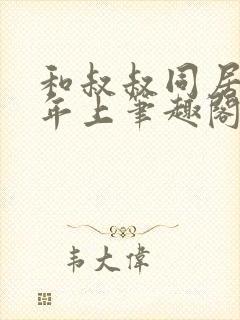 和叔叔同居
年上笔趣阁
韦大伟